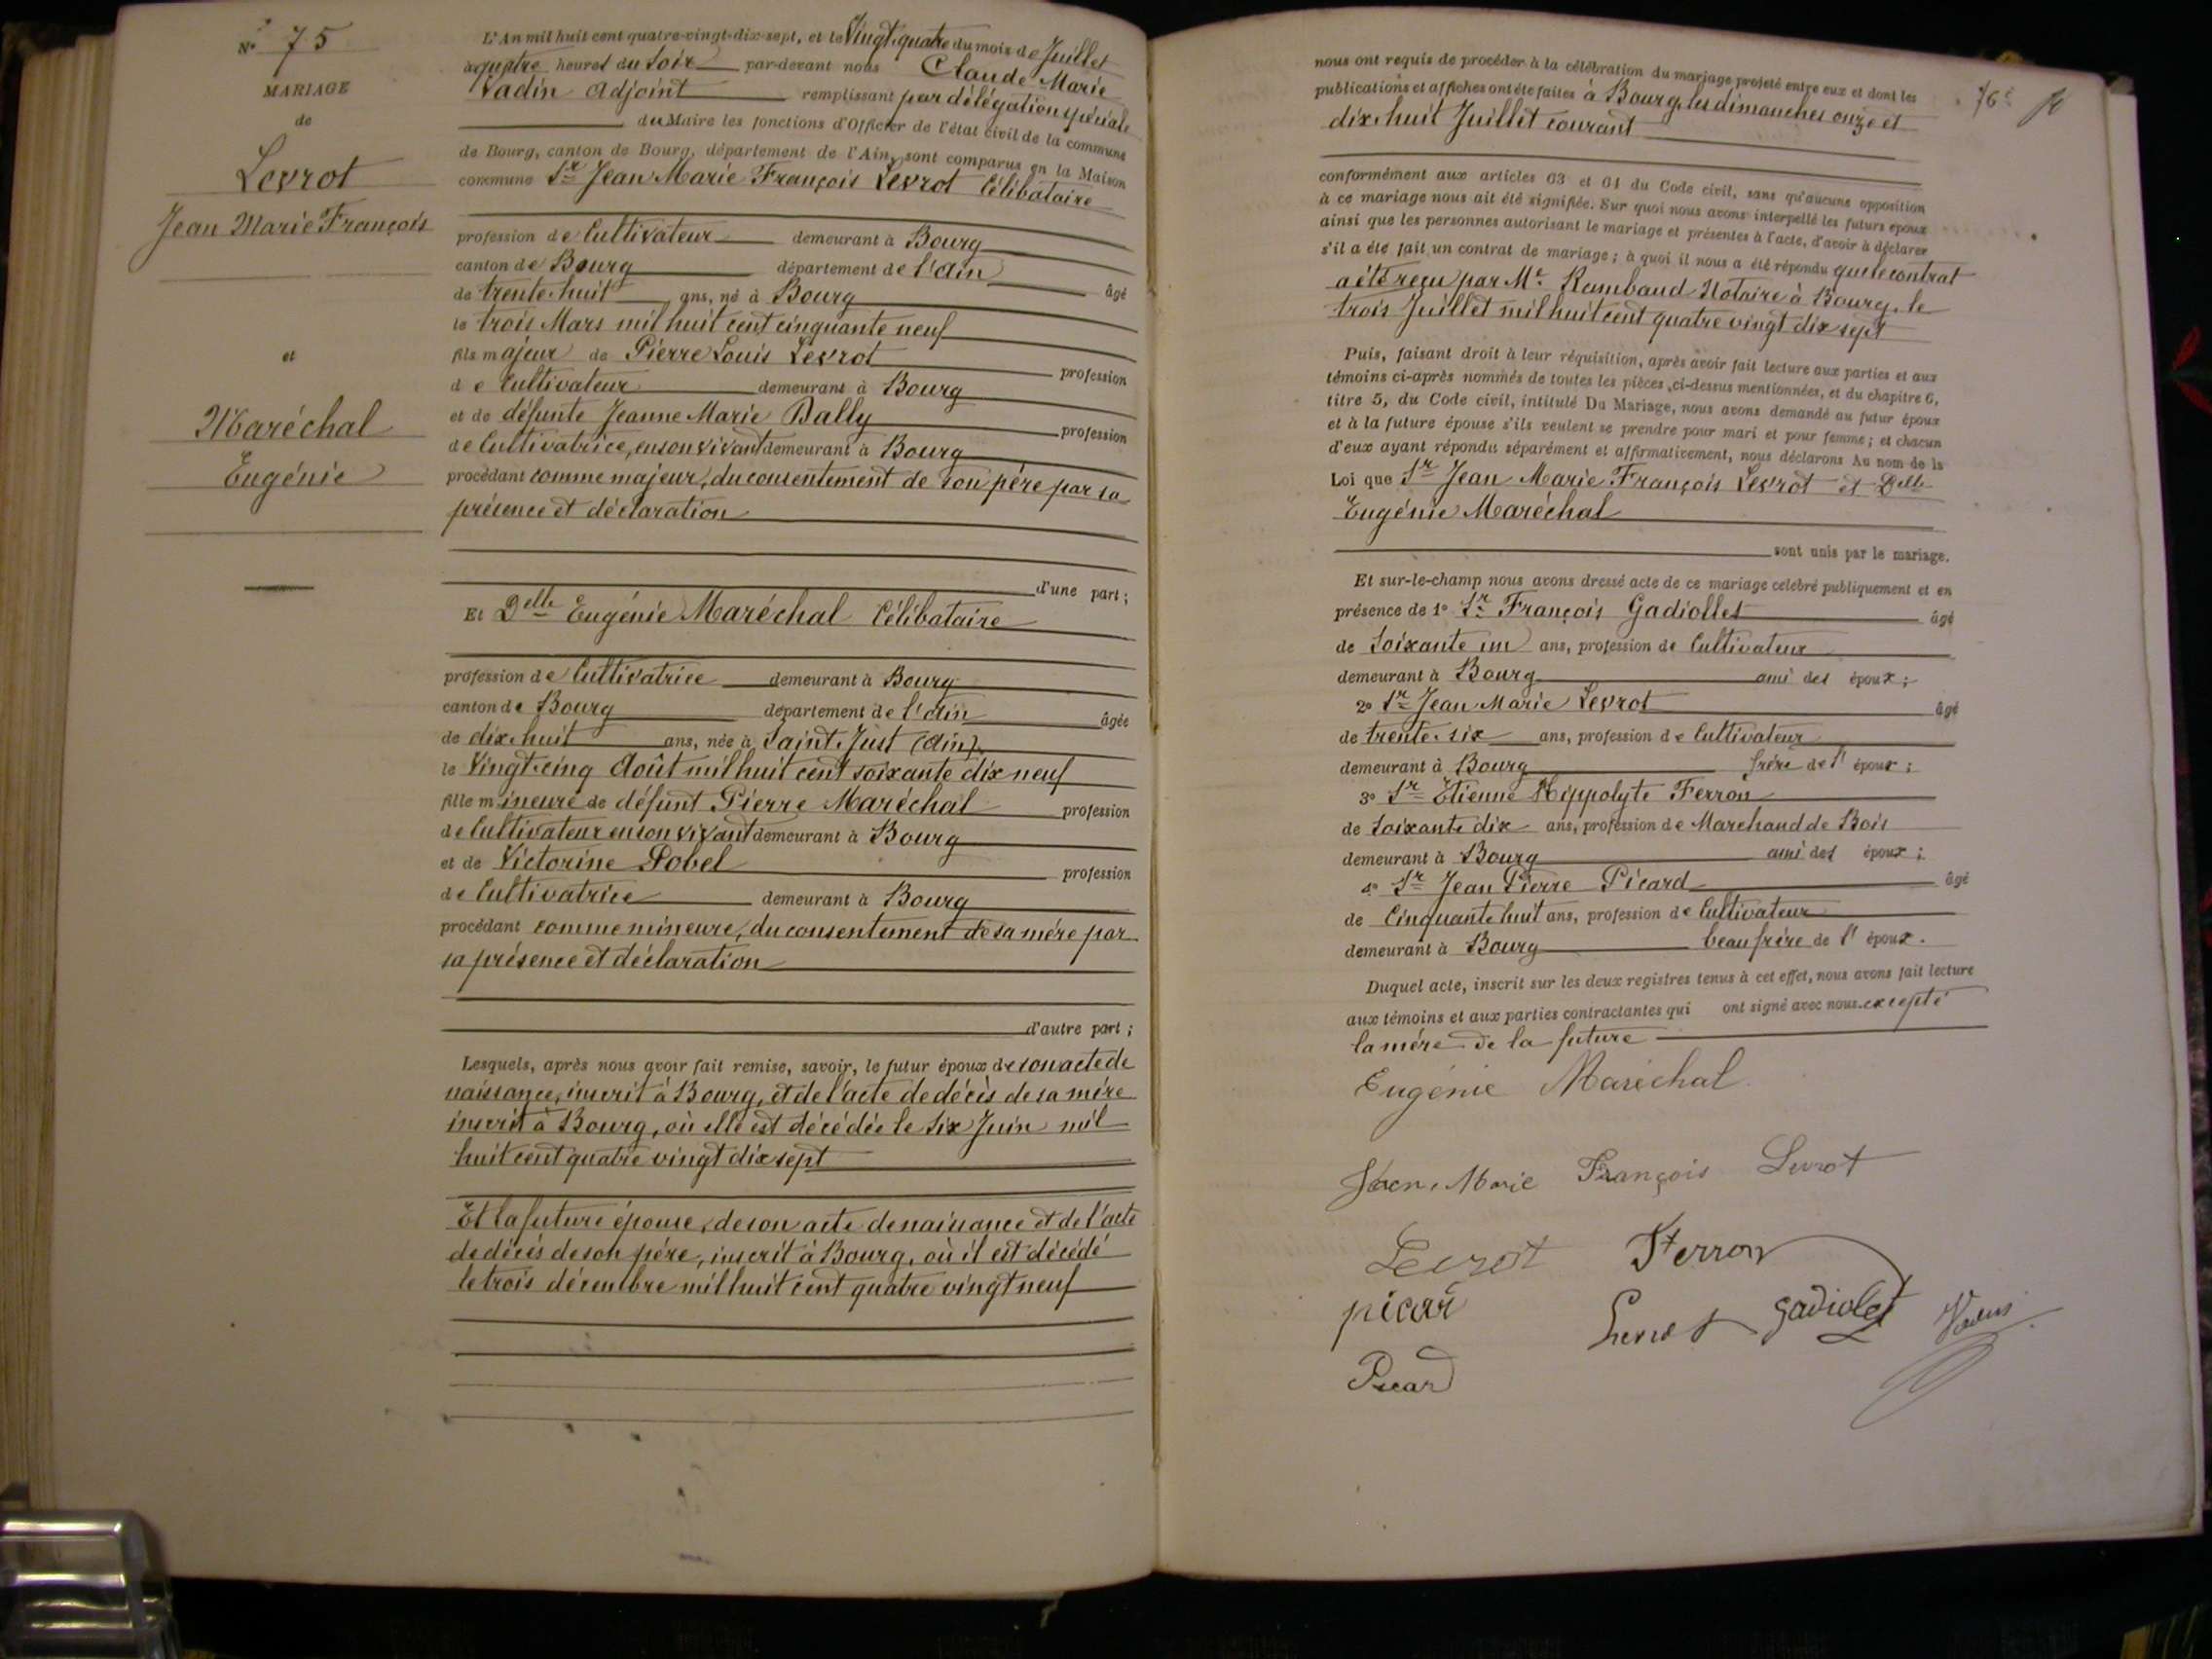 N° 75
MARIAGE
de
Levrot
Jean Marie François
et
Maréchal
Eugénie
L'An mil huit cent quatre-vingt-dix-sept, et le Vingt quatre du mois de Juillet
à quatre heures du soir par-devant nous Claude Marie
Vadin adjoint remplissant par délégation spéciale
du Maire les fonctions d'Officier de l'état civil de la commune
de Bourg, canton de Bourg, département de l'Ain, sont comparus en la Maison
commune Sr Jean Marie François Levrot Célibataire
profession de Cultivateur demeurant à Bourg
canton de Bourg département de l'Ain
âgé
de trente-huit ans, né à Bourg
le trois Mars mil huit cent cinquante neuf
fils majeur de Pierre Louis Levrot profession
de Cultivateur demeurant à Bourg
et de défunte Jeanne Marie Dally profession
de Cultivatrice, en son vivant demeurant à Bourg
procédant comme majeur, du consentement de son père par sa
présence et déclaration
d'une part ;
Et Delle Eugénie Maréchal Célibataire
profession de Cultivatrice demeurant à Bourg
canton de Bourg département de l'Ain âgée
de dix-huit ans, née à Saint-Just (Ain)
le Vingt-cinq Août mil huit cent soixante dix neuf
fille mineure de défunt Pierre Maréchal profession
de Cultivateur en son vivant demeurant à Bourg
et de Victorine Pobel profession
de Cultivatrice demeurant à Bourg
procédant comme mineure, du consentement de sa mère par
sa présence et déclaration
d'autre part ;
Lesquels, après nous avoir fait remise, savoir, le futur époux de son acte de
naissance, inscrit à Bourg, et de l'acte de décès de sa mère
inscrit à Bourg, où elle est décédée le six Juin mil
huit cent quatre vingt dix sept
Et la future épouse, de son acte de naissance et de l'acte
de décès de son père, inscrit à Bourg, où il est décédé
le trois décembre mil huit cent quatre vingt neuf
76e
nous ont requis de procéder à la célébration du mariage projeté entre eux et dont les
publications et affiches ont été faites à Bourg, les dimanches onze et
dix-huit Juillet courant
conformément aux articles 63 et 64 du Code civil, sans qu'aucune opposition
à ce mariage nous ait été signifiée. Sur quoi nous avons interpellé les futurs époux
ainsi que les personnes autorisant le mariage et présentes à l'acte, d'avoir à déclarer
s'il a été fait un contrat de mariage ; à quoi il nous a été répondu que le contrat
a été reçu par Me Rambaud Notaire à Bourg, le
trois Juillet mil huit cent quatre vingt dix sept
Puis, faisant droit à leur réquisition, après avoir fait lecture aux parties et aux
témoins ci-après nommés de toutes les pièces ci-dessus mentionnées, et du chapitre 6,
titre 5, du Code civil, intitulé Du Mariage, nous avons demandé au futur époux
et à la future épouse s'ils veulent se prendre pour mari et pour femme ; et chacun
d'eux ayant répondu séparément et affirmativement, nous déclarons Au nom de la
Loi que Sr Jean Marie François Levrot et Delle
Eugénie Maréchal
sont unis par le mariage.
Et sur-le-champ nous avons dressé acte de ce mariage célébré publiquement et en
présence de 1° Sr François Gadiollet âgé
de soixante un ans, profession de Cultivateur
demeurant à Bourg ami des époux ;
2° Sr Jean Marie Levrot âgé
de trente-six ans, profession de Cultivateur
demeurant à Bourg frère de l'époux ;
3° Sr Etienne Hippolyte Ferron
de soixante dix ans, profession de Marchand de Bois
demeurant à Bourg ami des époux ;
4° Sr Jean Pierre Picard âgé
de Cinquante huit ans, profession de Cultivateur
demeurant à Bourg beau frère de l'époux.
Duquel acte, inscrit sur les deux registres tenus à cet effet, nous avons fait lecture
aux témoins et aux parties contractantes qui ont signé avec nous excepté
la mère de la future
Eugénie Maréchal
Jean Marie François Levrot
Levrot Ferron
picard Levrot gadiolet Vadin
Picard